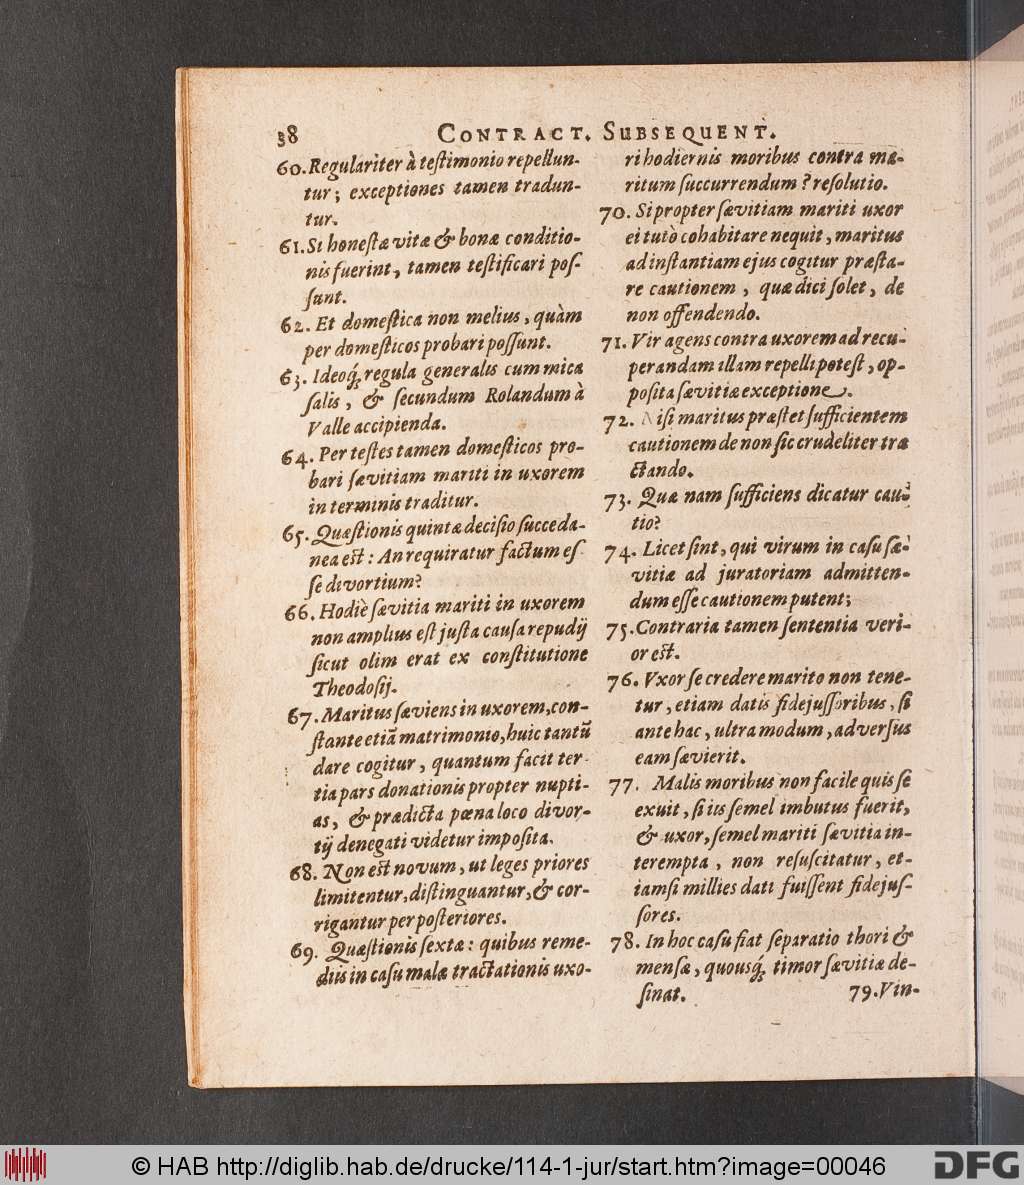 38 CONTRACT. SUBSEQUENT.
60. Regulariter à testimonio repellun-
tur; exceptiones tamen tradun-
tur.
61. Si honestæ vitæ & bonæ conditio-
nis fuerint, tamen testificari pos-
sunt.
62. Et domestica non melius, quàm
per domesticos probari possunt.
63. Ideoq́; regula generalis cum mica
salis, & secundum Rolandum à
Valle accipienda.
64. Per testes tamen domesticos pro-
bari sævitiam mariti in uxorem
in terminis traditur.
65. Quæstionis quintæ decisio succeda-
nea est: An requiratur factum es-
se divortium?
66. Hodiè sævitia mariti in uxorem
non amplius est justa causa repudij
sicut olim erat ex constitutione
Theodosij.
67. Maritus sæviens in uxorem, con-
stante etiã matrimonio, huic tantũ
dare cogitur, quantum facit ter-
tia pars donationis propter nupti-
as, & prædicta pœna loco divor-
tij denegati videtur imposita.
68. Non est novum, ut leges priores
limitentur, distinguantur, & cor-
rigantur per posteriores.
69. Quæstionis sextæ: quibus reme-
diis in casu malæ tractationis uxo-
ri hodiernis moribus contra ma-
ritum succurrendum? resolutio.
70. Si propter sævitiam mariti uxor
ei tutò cohabitare nequit, maritus
ad instantiam ejus cogitur præsta-
re cautionem, quæ dici solet, de
non offendendo.
71. Vir agens contra uxorem ad recu-
perandam illam repelli potest, op-
posita sævitiæ exceptione.
72. Nisi maritus præstet sufficientem
cautionem de non sic crudeliter tra
ctando.
73. Quæ nam sufficiens dicatur cau-
tio?
74. Licet sint, qui virum in casu sæ-
vitiæ ad juratoriam admitten-
dum esse cautionem putent;
75. Contraria tamen sententia veri-
or est.
76. Vxor se credere marito non tene-
tur, etiam datis fidejussoribus, si
ante hac, ultra modum, adversus
eam sævierit.
77. Malis moribus non facile quis se
exuit, si iis semel imbutus fuerit,
& uxor, semel mariti sævitia in-
terempta, non resuscitatur, et-
iamsi millies dati fuissent fidejus-
sores.
78. In hoc casu fiat separatio thori &
mensæ, quousq́; timor sævitiæ de-
sinat. 79. Vin-
© HAB http://diglib.hab.de/drucke/114-1-jur/start.htm?image=00046
DFG